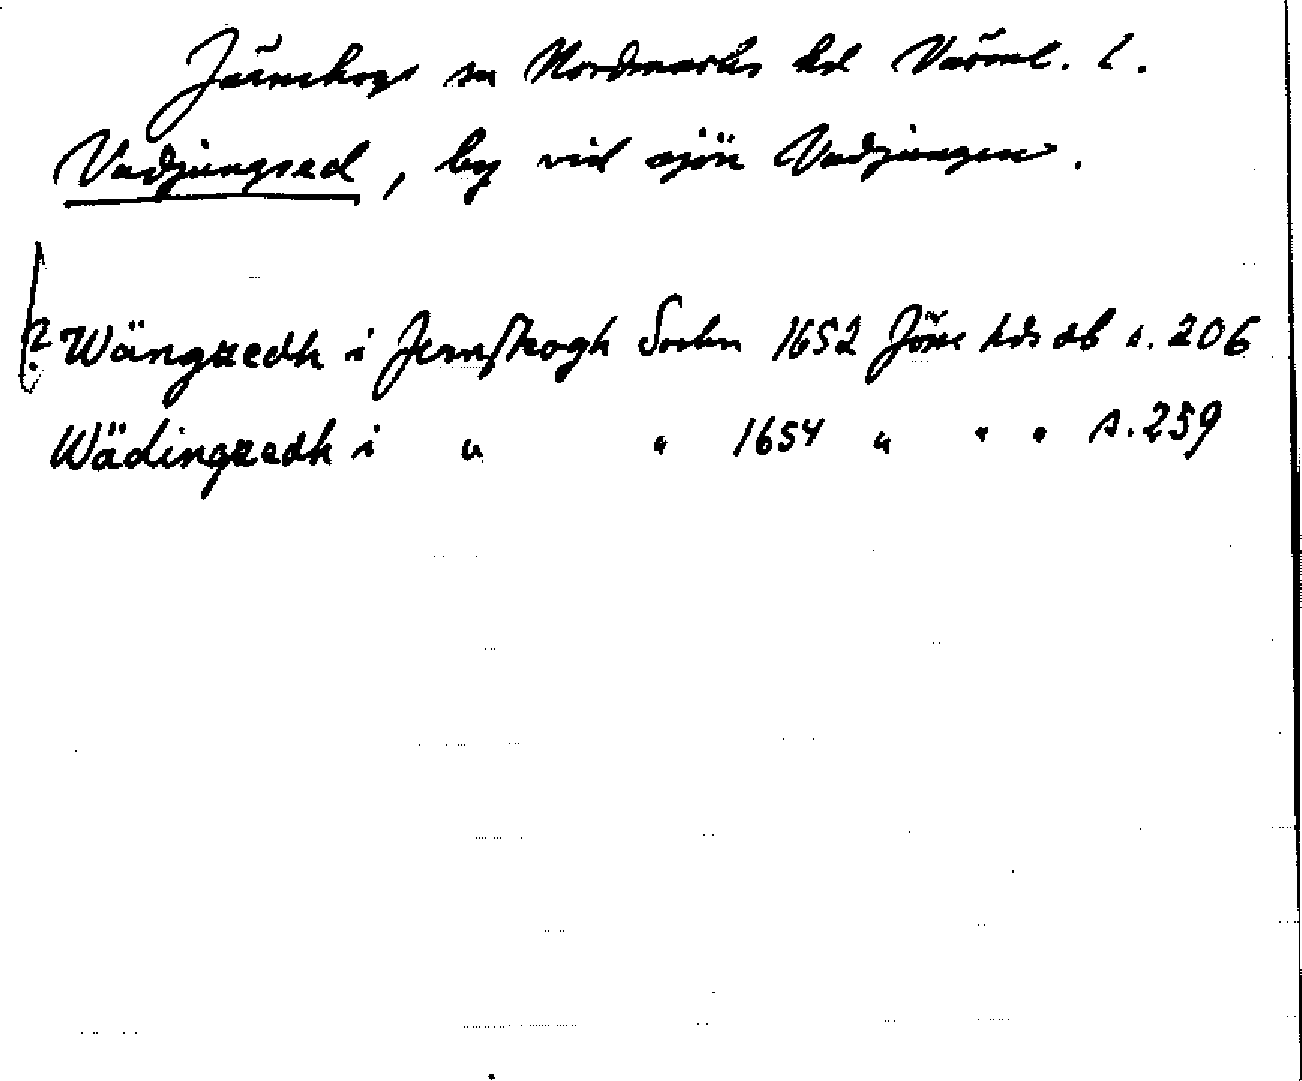 Järnskogs sn Nordmarks hd Värml. l.
Vadjungsed, by vid sjön Vadjungen.
? Wängzedh i Jernskogh Sochn 1652 Jösse hds db s. 206
Wädingzedh i " " 1654 " " " s. 259